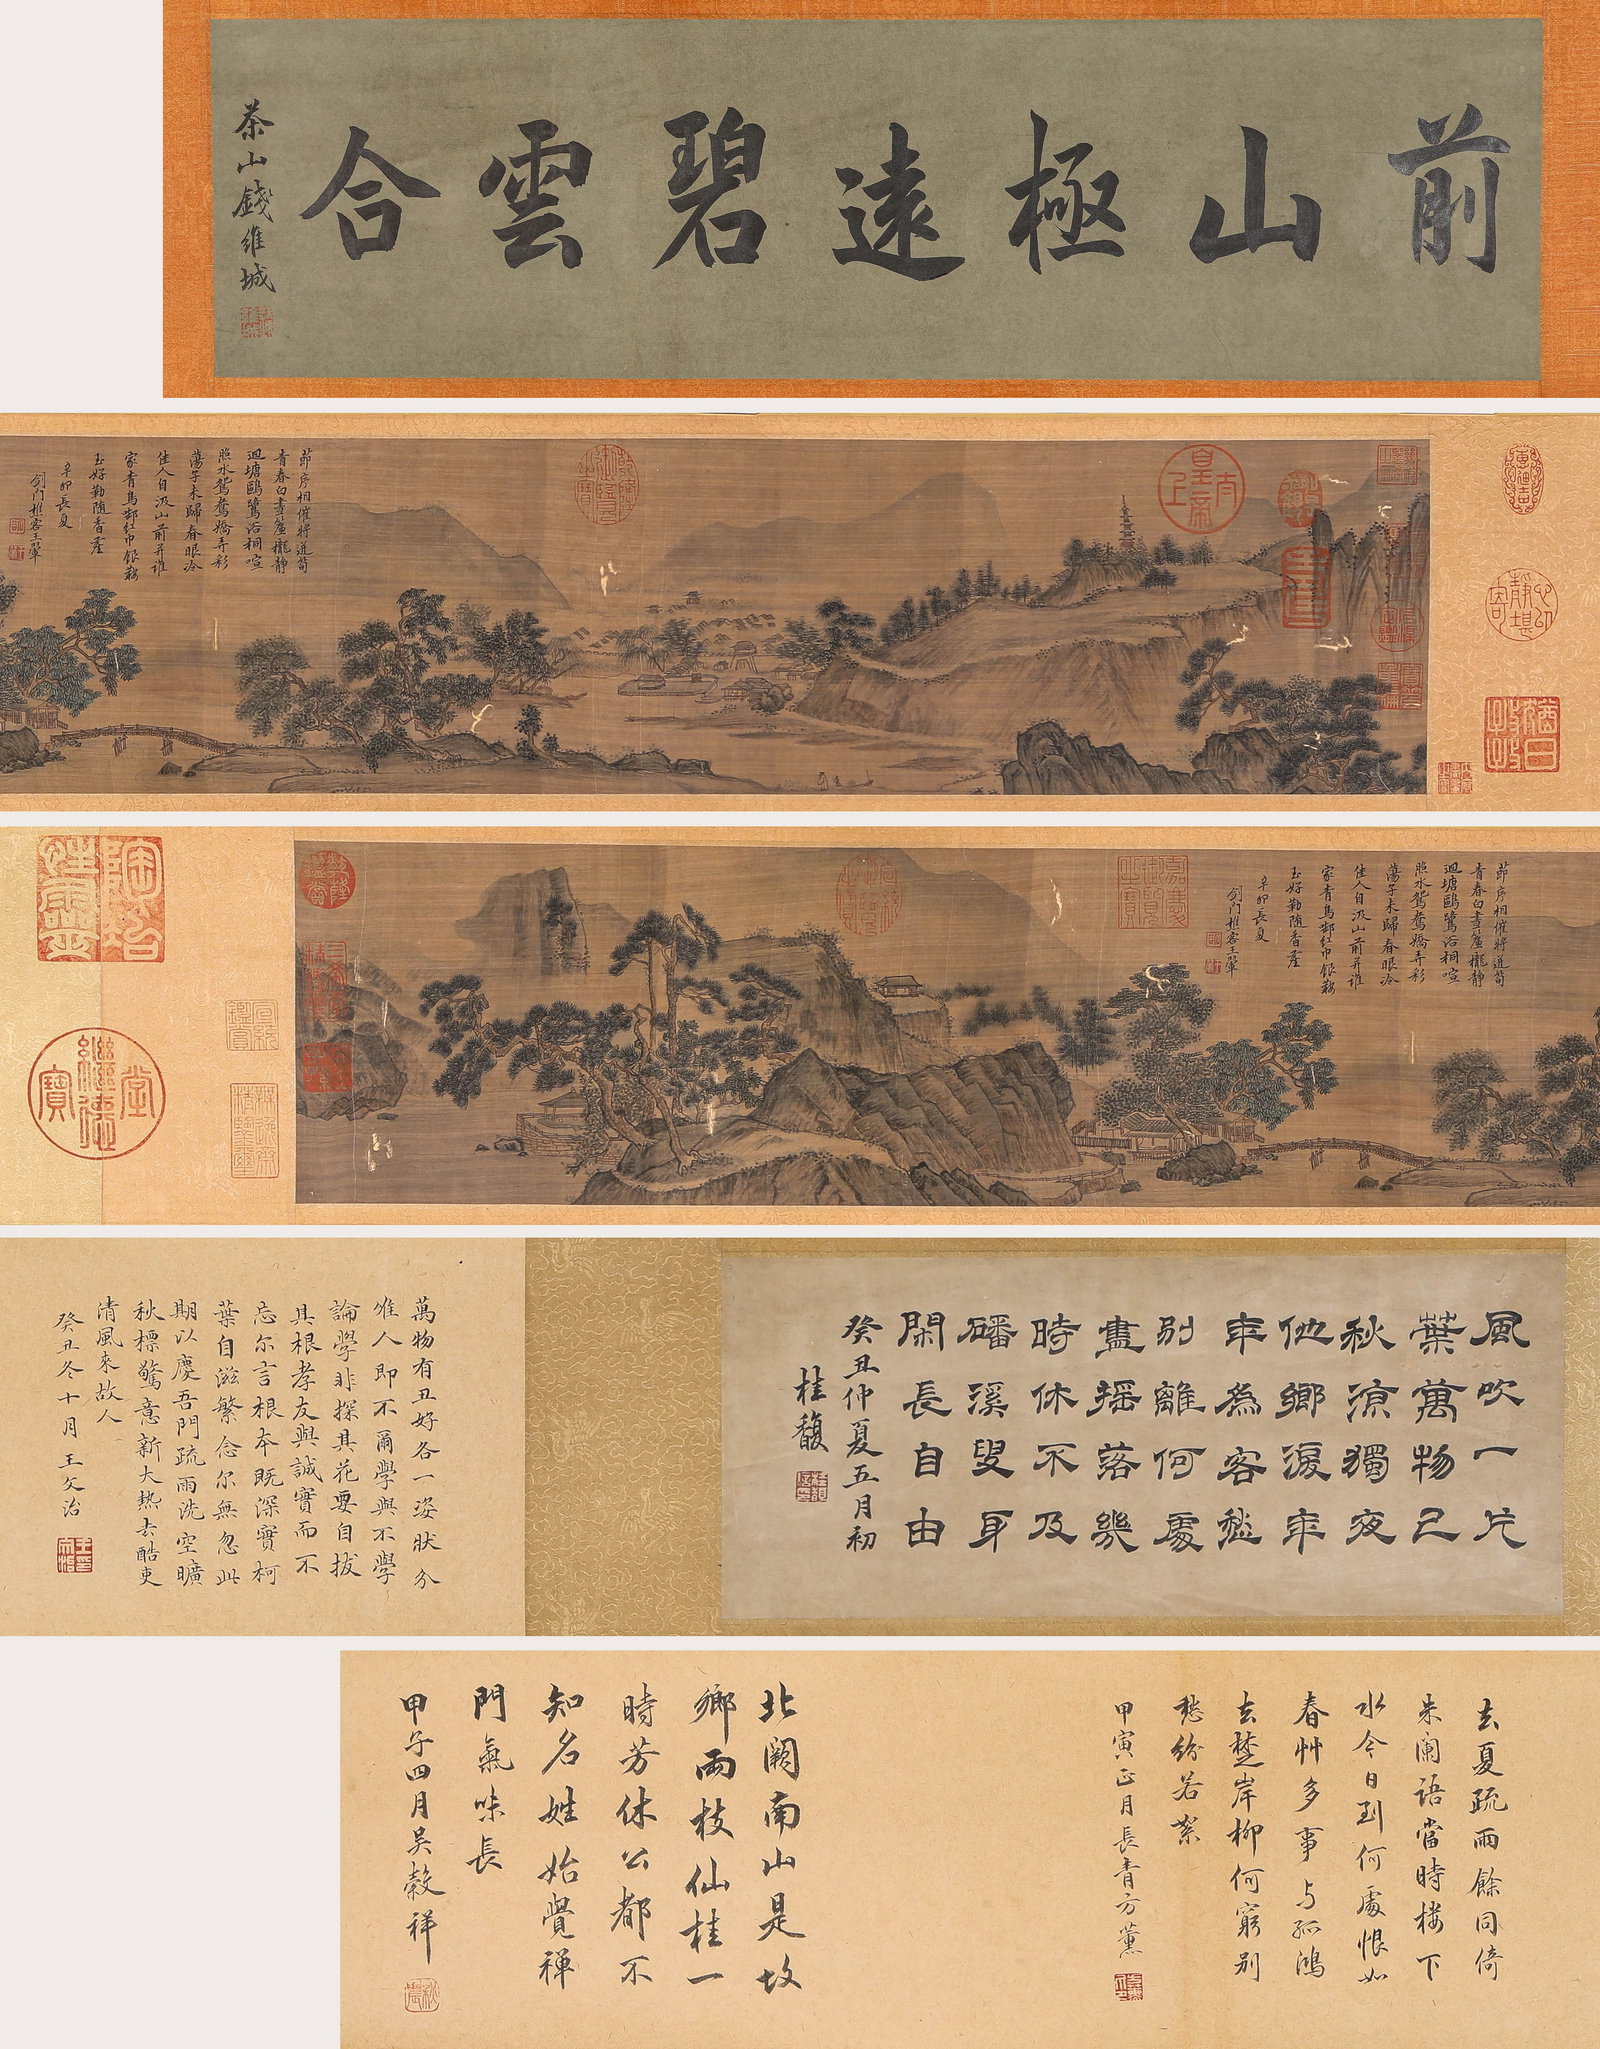 前山極遠碧雲合
茶山錢維城
太上皇帝
節序相催將近荀
青春白晝簾櫳靜
迴塘鷗鷺浴桐喧
照水鴛鴦嬌弄彩
蕩子未歸春眠冷
佳人自汲山前井誰
家青鳥御紅巾銀鞍
玉勒隨香塵
辛卯長夏
劍門樵客王翬
節序相催將近荀
青春白晝簾櫳靜
迴塘鷗鷺浴桐喧
照水鴛鴦嬌弄彩
蕩子未歸春眠冷
佳人自汲山前井誰
家青鳥御紅巾銀鞍
玉勒隨香塵
辛卯長夏
劍門樵客王翬
乾隆鑑賞
繼德堂寶
風吹一片
葉萬物已
秋涼獨夜
他鄉淚年
年為客愁
別離何處
盡搖落幾
時休不及
磻溪叟身
閑長自由
癸丑仲夏五月初
桂馥
萬物有丑好各一姿狀分
唯人即不爾學與不學
論學非探其花要自拔
其根孝友與誠實而不
忘尔言根本既深實柯
葉自滋繁念尔無忽此
期以慶吾門疏雨洗空曠
秋標驚意新大熱去酷吏
清風來故人
癸丑冬十月王文治
去夏疏雨餘同倚
朱闌語當時樓下
水今日到何處恨如
春艸多事与孤鴻
去楚岸柳何窮別
愁紛若絮
甲寅正月長青方薰
北闕南山是故
鄉兩枝仙桂一
時芳休公都不
知名姓始覺禪
門氣味長
甲子四月吴榖祥